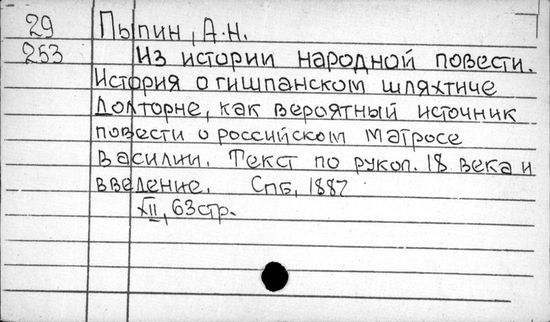 29 Пыпин, А.Н.
253 Из истории народной повести.
История о гишпанском шляхтиче
Долторне, как вероятный источник
повести о российском матросе
Василии. Текст по рукоп. 18 века и
введение. Спб, 1887
XII, 63 стр.